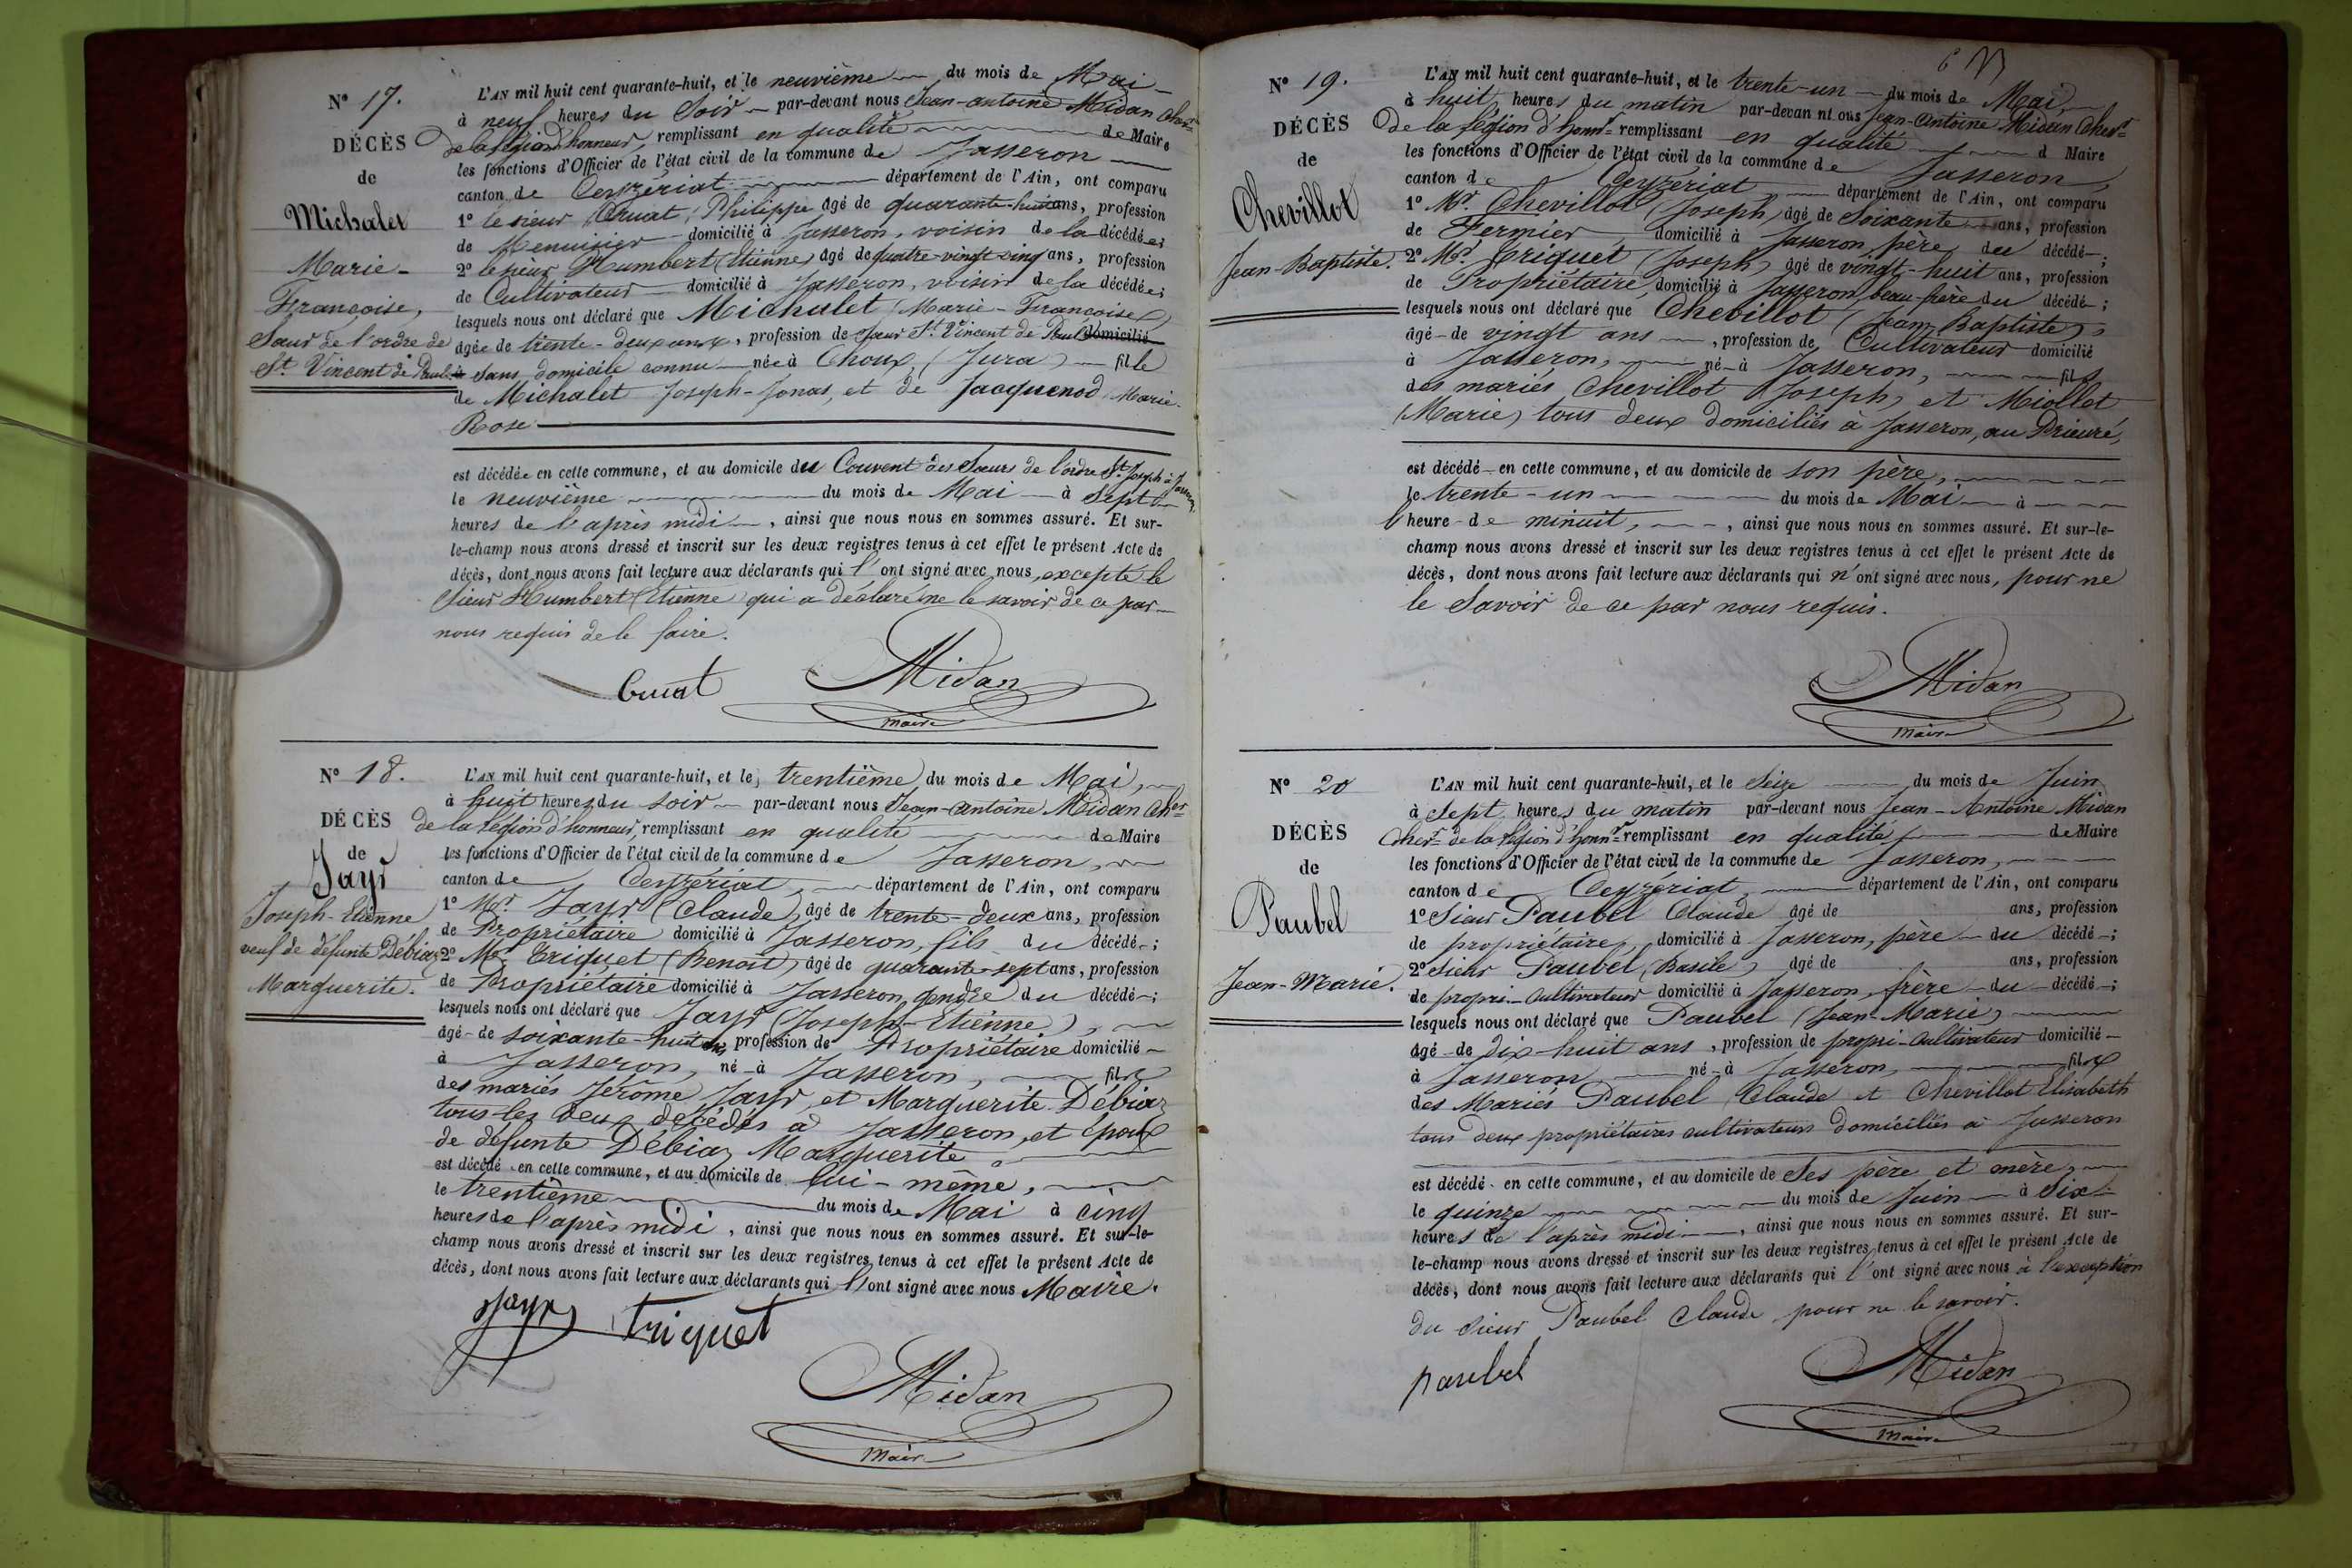 N° 17.
DÉCÈS
de
Michalet
Marie-
Françoise,
Sœur de l'ordre de
St. Vincent de Paul.
L'AN mil huit cent quarante-huit, et le neuvième du mois de Mai
à neuf heures du Soir par-devant nous Jean-antoine Midan Cher
de la légion d'honneur, remplissant en qualité de Maire
les fonctions d'Officier de l'état civil de la commune de Jasseron
canton de Ceyzériat département de l'Ain, ont comparu
1° le sieur Cruat, Philippe âgé de quarante-huit ans, profession
de Menuisier domicilié à Jasseron, voisin de la décédée;
2° le sieur Humbert (Etienne) âgé de quatre-vingt cinq ans, profession
de Cultivateur domicilié à Jasseron, voisin de la décédée;
lesquels nous ont déclaré que Michalet (Marie-Françoise)
âgée de trente-deux ans, profession de Sœur St. Vincent de Paul domicilié
à sans domicile connu née à Choux, (Jura) fille
de Michalet Joseph-Jonas, et de Jacquenod Marie-
Rose
est décédée en cette commune, et au domicile du Couvent des Sœurs de l'ordre St. Joseph à Jasseron,
le neuvième du mois de Mai à Sept
heures de l'après midi, ainsi que nous nous en sommes assuré. Et sur-
le-champ nous avons dressé et inscrit sur les deux registres tenus à cet effet le présent Acte de
décès, dont nous avons fait lecture aux déclarants qui l'ont signé avec nous, excepté le
Sieur Humbert (Etienne) qui a déclaré ne le savoir de ce par
nous requis de le faire.
Cruat Midan
maire
N° 18.
DÉCÈS
de
Jayr
Joseph-Etienne
veuf de défunte Débiaz
Marguerite.
L'AN mil huit cent quarante-huit, et le trentième du mois de Mai,
à huit heures du soir par-devant nous Jean-antoine Midan Cher
de la légion d'honneur, remplissant en qualité de Maire
les fonctions d'Officier de l'état civil de la commune de Jasseron,
canton de Ceyzériat, département de l'Ain, ont comparu
1° Mr. Jayr (Claude), âgé de trente-deux ans, profession
de Propriétaire domicilié à Jasseron, fils du décédé;
2° Mr. Triquet (Benoît), âgé de quarante-sept ans, profession
de Propriétaire domicilié à Jasseron, gendre du décédé;
lesquels nous ont déclaré que Jayr (Joseph-Etienne),
âgé de soixante-huit ans, profession de Propriétaire domicilié
à Jasseron, né à Jasseron, fils
des mariés Jérôme Jayr, et Marguerite Débiaz
tous les deux décédés à Jasseron, et époux
de défunte Débiaz Marguerite
est décédé en cette commune, et au domicile de lui-même,
le trentième du mois de Mai à cinq
heures de l'après midi, ainsi que nous nous en sommes assuré. Et sur-le-
champ nous avons dressé et inscrit sur les deux registres tenus à cet effet le présent Acte de
décès, dont nous avons fait lecture aux déclarants qui l'ont signé avec nous Maire.
Jayr Triquet
Midan
Maire
N° 19.
DÉCÈS
de
Chevillot
Jean-Baptiste.
L'AN mil huit cent quarante-huit, et le trente-un du mois de Mai
à huit heures du matin par-devant nous Jean-Antoine Midan Cher
de la légion d'honnr remplissant en qualité d Maire
les fonctions d'Officier de l'état civil de la commune de Jasseron,
canton de Ceyzériat département de l'Ain, ont comparu
1° Mr. Chevillot (Joseph) âgé de Soixante ans, profession
de Fermier, domicilié à Jasseron, père du décédé;
2° Mr. Triquet (Joseph) âgé de vingt-huit ans, profession
de Propriétaire, domicilié à Jasseron, beau-frère du décédé;
lesquels nous ont déclaré que Chevillot (Jean-Baptiste),
âgé de vingt ans, profession de Cultivateur domicilié
à Jasseron, né à Jasseron, fils
des mariés Chevillot (Joseph) et Miollet
(Marie) tous deux domiciliés à Jasseron, au Prieuré,
est décédé en cette commune, et au domicile de son père,
le trente-un du mois de Mai à
l'heure de minuit, ainsi que nous nous en sommes assuré. Et sur-le-
champ nous avons dressé et inscrit sur les deux registres tenus à cet effet le présent Acte de
décès, dont nous avons fait lecture aux déclarants qui n'ont signé avec nous, pour ne
le Savoir de ce par nous requis.
Midan
Maire
N° 20
DÉCÈS
de
Paubel
Jean-Marie.
L'AN mil huit cent quarante-huit, et le Seize du mois de Juin
à Sept heures du matin par-devant nous Jean-Antoine Midan
Cher de la légion d'honnr remplissant en qualité de Maire
les fonctions d'Officier de l'état civil de la commune de Jasseron,
canton de Ceyzériat, département de l'Ain, ont comparu
1° Sieur Paubel Claude âgé de ans, profession
de propriétaire, domicilié à Jasseron, père du décédé;
2° Sieur Paubel, (Basile) âgé de ans, profession
de propri-Cultivateur domicilié à Jasseron, frère du décédé;
lesquels nous ont déclaré que Paubel (Jean-Marie)
âgé de dix-huit ans, profession de propri-Cultivateur domicilié
à Jasseron né à Jasseron fils
des Mariés Paubel Claude et Chevillot Elisabeth
tous deux propriétaires cultivateurs domiciliés à Jasseron
est décédé en cette commune, et au domicile de Ses père et mère,
le quinze du mois de Juin à Six
heures de l'après midi, ainsi que nous nous en sommes assuré. Et sur-
le-champ nous avons dressé et inscrit sur les deux registres tenus à cet effet le présent Acte de
décès, dont nous avons fait lecture aux déclarants qui l'ont signé avec nous à l'exception
du Sieur Paubel Claude pour ne le savoir.
paubel Midan
Maire